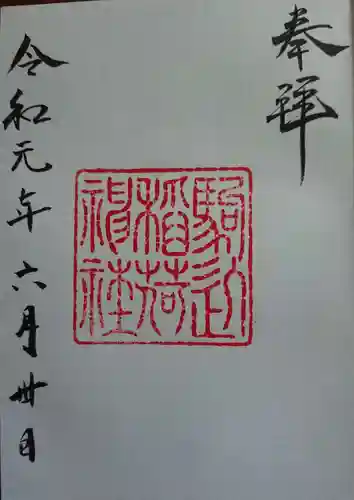 奉拝
駒込
稲荷
神社
令和元年六月卅日